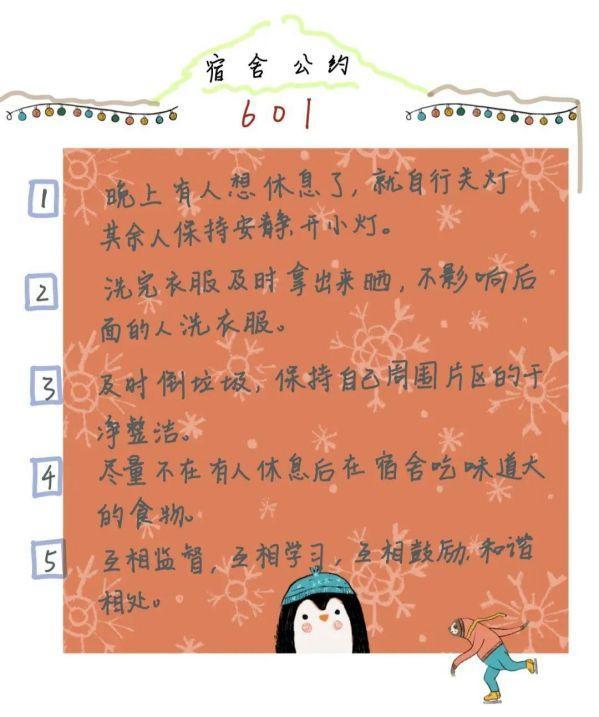 宿舍公约
601
1 晚上有人想休息了，就自行关灯
其余人保持安静开小灯。
2 洗完衣服及时拿出来晒，不影响后
面的人洗衣服。
3 及时倒垃圾，保持自己周围片区的干
净整洁。
4 尽量不在有人休息后在宿舍吃味道大
的食物。
5 互相监督，互相学习，互相鼓励.和谐
相处。